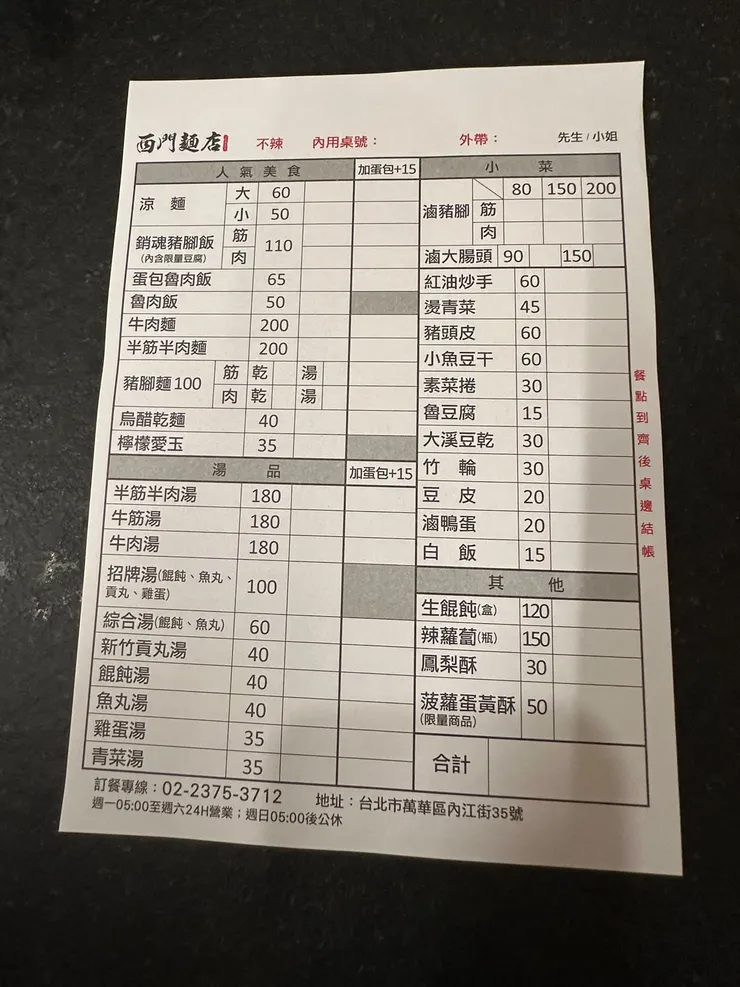 西門麵店 不辣 內用桌號： 外帶： 先生/小姐
人氣美食 加蛋包+15
涼麵 大 60
小 50
銷魂豬腳飯 筋 110
(內含限量豆腐) 肉
蛋包魯肉飯 65
魯肉飯 50
牛肉麵 200
半筋半肉麵 200
豬腳麵100 筋 乾 湯
肉 乾 湯
烏醋乾麵 40
檸檬愛玉 35
湯品 加蛋包+15
半筋半肉湯 180
牛筋湯 180
牛肉湯 180
招牌湯(餛飩、魚丸、 100
貢丸、雞蛋)
綜合湯(餛飩、魚丸) 60
新竹貢丸湯 40
餛飩湯 40
魚丸湯 40
雞蛋湯 35
青菜湯 35
小菜
80 150 200
滷豬腳 筋
肉
滷大腸頭 90 150
紅油炒手 60
燙青菜 45
豬頭皮 60
小魚豆干 60
素菜捲 30
魯豆腐 15
大溪豆乾 30
竹輪 30
豆皮 20
滷鴨蛋 20
白飯 15
其他
生餛飩(盒) 120
辣蘿蔔(瓶) 150
鳳梨酥 30
菠蘿蛋黃酥 50
(限量商品)
合計
餐點到齊後桌邊結帳
訂餐專線：02-2375-3712 地址：台北市萬華區內江街35號
週一05:00至週六24H營業；週日05:00後公休